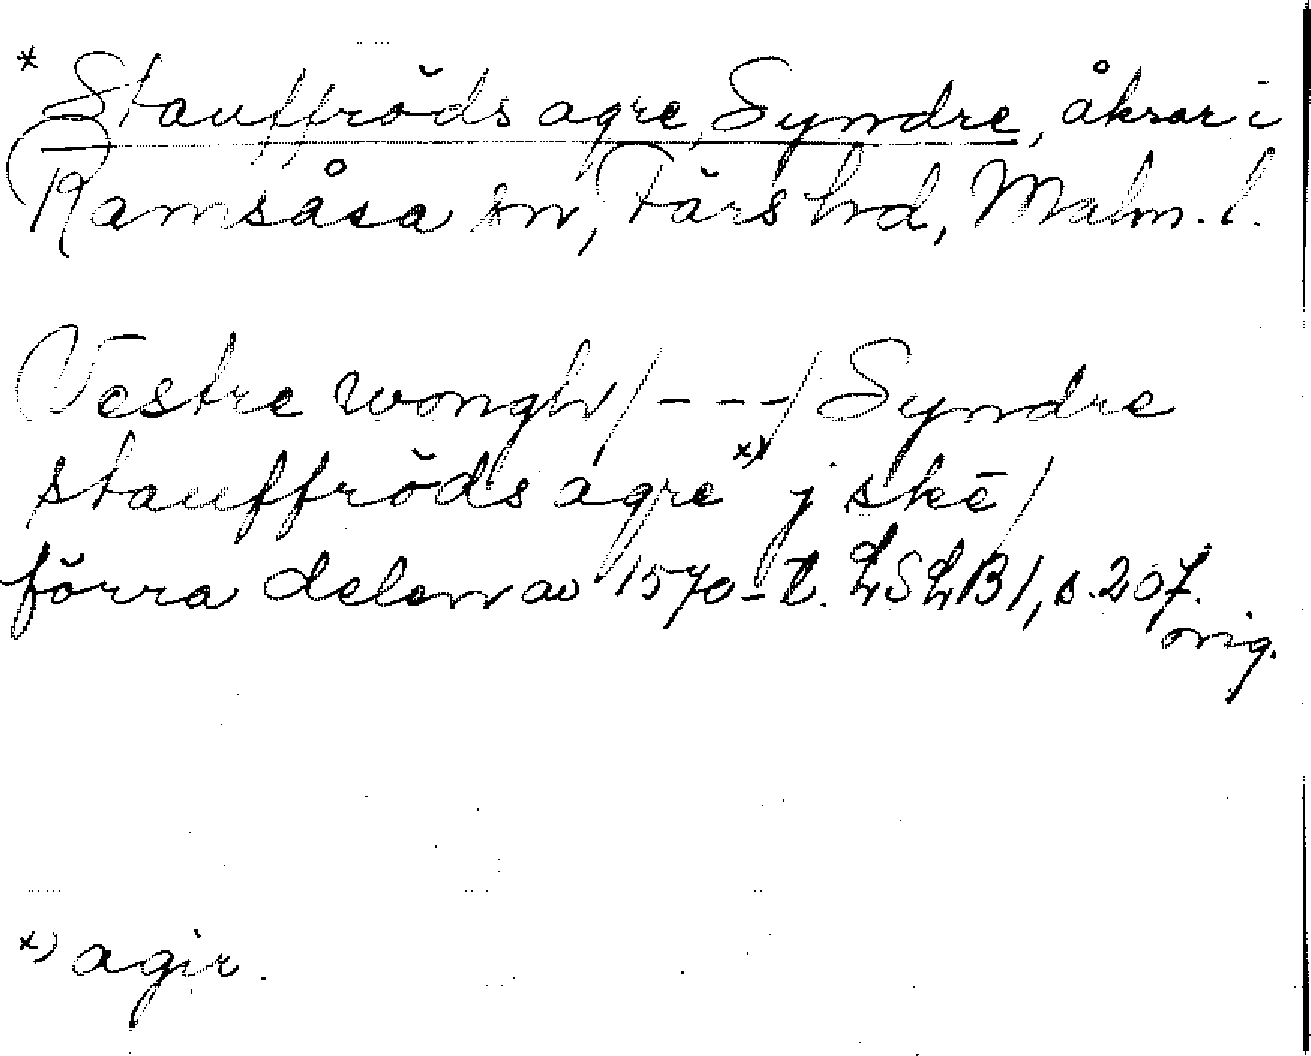 * Stauffröds agre, Syndre, åkrar i
Ramsåsa sn, Färs hd, Malm. l.
Vestre wongh / - - - / Syndre
stauffröds agre x) j skē /
förra delen av 1570-t. LSLB1, s. 207.
orig.
x) agir.